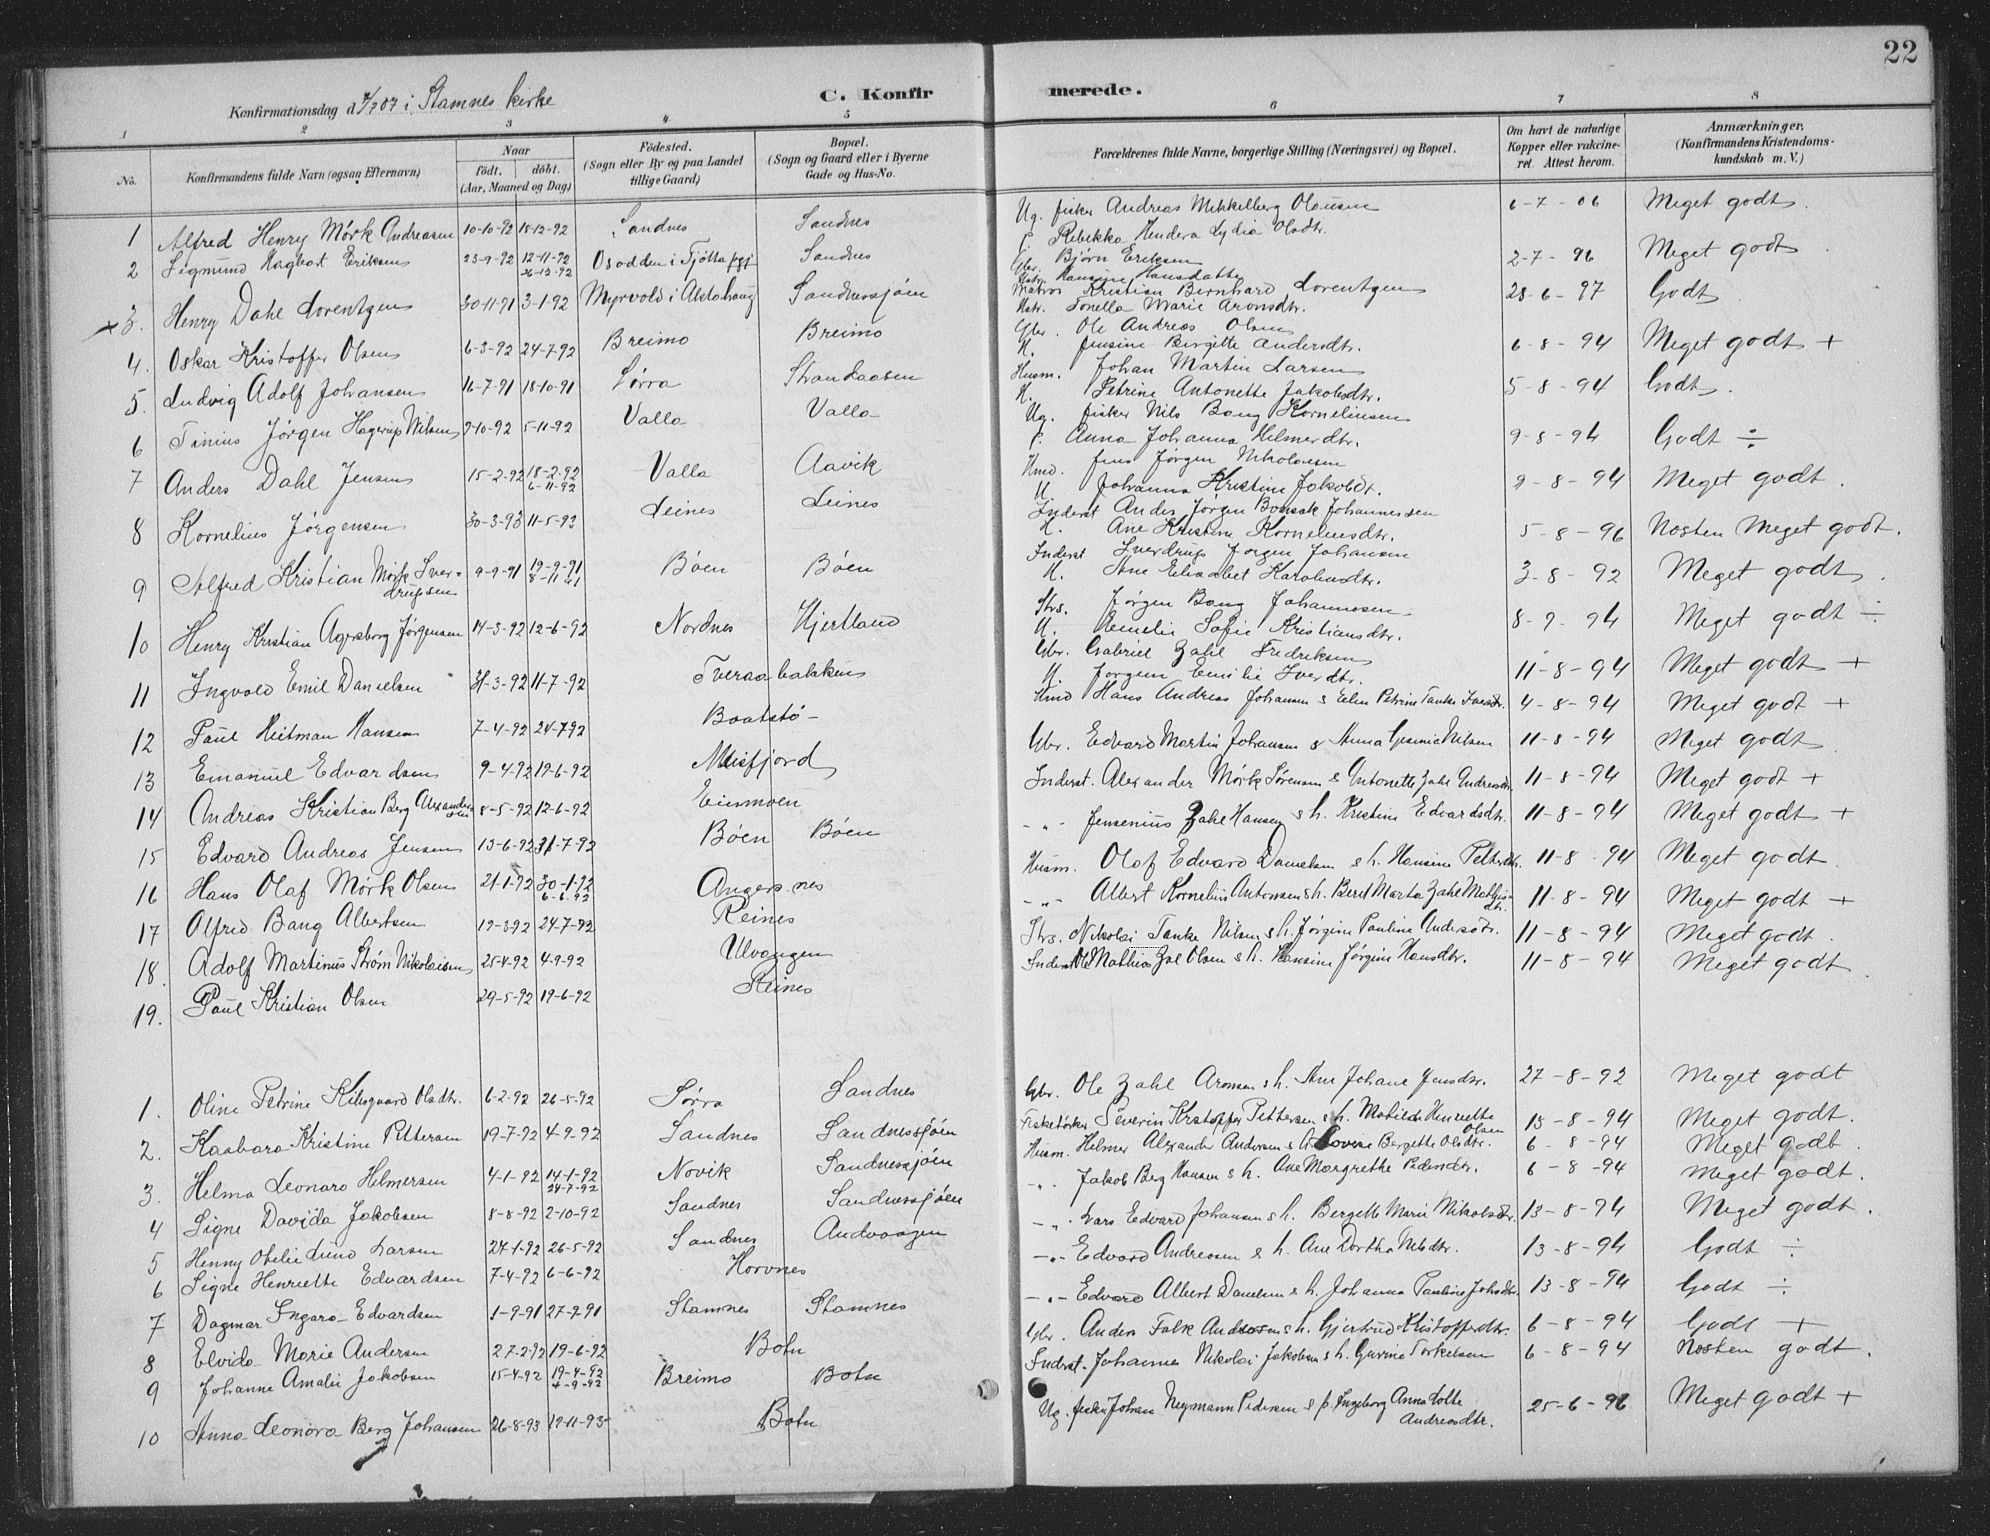 22
Konfirmationsdag d 7/7 07 i Stamnes kirke
C. Konfirmerede.
1 2 3 4 5 6 7 8
No.
Konfirmandens fulde Navn (ogsaa Efternavn)
Naar
födt. döbt.
(Aar, Maaned og Dag)
Födested.
(Sogn eller By og paa Landet
tillige Gaard)
Bopæl.
(Sogn og Gaard eller i Byerne
Gade og Hus-No.
Forældrenes fulde Navne, borgerlige Stilling (Næringsvei) og Bopæl.
Om havt de naturlige
Kopper eller vakcine-
ret. Attest herom.
Anmærkninger.
(Konfirmandens Kristendoms-
kundskab m. V.)
1 Alfred Henry Mörk Andreasen 10-10-92 18-12-92 Sandnes Sandnes Ug. fisker Andreas Mikkelberg Olausen P. Rebekka Hendera Lydia Olsdtr. 6-7-06 Meget godt.
2 Sigmund Hagbart Eriksen 23-9-92 12-11-92 26-12-92 Osodden i Tjötta pgj Sandnes Gbr. Björn Eriksen Hstr. Hansine Hansdatter 2-7-96 Meget godt.
x 3. Henry Dahl Lorentzen 30-11-91 3-1-92 Myrvold i Alstahaug Sandnessjöen Matros Kristian Bernhard Lorentzen Hstr. Tonella Marie Aronsdtr. 28-6-97 Godt.
4. Oskar Kristoffer Olsen 6-3-92 24-7-92 Breimo Breimo Gbr. Ole Andreas Olsen H. Jensine Birgitte Andersdtr. 6-8-94 Meget godt +
5. Ludvig Adolf Johansen 16-7-91 18-10-91 Sörra Strandaasen Husm. Johan Martin Larsen H. Petrine Antonette Jakobsdtr. 5-8-94 Godt.
6 Tinius Jörgen Hagerup Nilsen 9-10-92 5-11-92 Valla Valla Ug. fisker Nils Bang Korneliussen P. Anna Johanna Helmersdtr. 9-8-94 Godt ÷
7 Anders Dahl Jensen 15-2-92 18-2-92 6-11-92 Valla Aavik Hmd. Jens Jörgen Nikolaisen H. Johanna Kristine Jakobdt. 9-8-94 Meget godt.
8 Kornelius Jörgensen 30-3-93 11-5-93 Leines Leines Inderst Anders Jörgen Bonsak Johannessen H. Ane Kristine Korneliusdtr. 5-8-96 Næsten Meget godt.
9 Alfred Kristian Mörk Sverdrupsen 9-9-91 19-9-91 8-11-91 Böen Böen Inderst Sverdrup Jörgen Johansen H. Ane Elisabet Karolusdtr. 3-8-92 Meget godt.
10 Henry Kristian Agersborg Jörgensen 14-3-92 12-6-92 Nordnes Hjertland Strs. Jörgen Bang Johannesen H. Amelie Sofie Kristiansdtr. 8-9-94 Meget godt ÷
11 Ingvald Emil Danielsen 31-3-92 11-7-92 Tveraabakken Gbr. Gabriel Zahl Fredriksen H. Jörgine Emilie Iverdtr. 11-8-94 Meget godt +
12 Paul Heitman Hansen 7-4-92 24-7-92 Baatstö- Hmd Hans Andreas Johansen & Elen Petrine Tanke Iversdtr. 4-8-94 Meget godt +
13 Emanuel Edvardsen 9-4-92 19-6-92 Meisfjord Gbr. Edvard Martin Johansen & Anna Gesine Nilsen 11-8-94 Meget godt.
14 Andreas Kristian Berg Alexandersen 8-5-92 12-6-92 Einmoen Inderst. Alexander Mörk Sörensen & Antonette Zahl Andreasdtr. 11-8-94 Meget godt +
15 Edvard Andreas Jensen 13-6-92 31-7-92 Böen Böen -"- Jensenius Zahl Hansen & h. Kristine Edvardsdtr. 11-8-94 Meget godt +
16 Hans Olaf Mörk Olsen 21-1-92 30-1-92 6-6-92 Angersnes Husm. Olaf Edvard Danielsen & h. Hansine Pettersdtr. 11-8-94 Meget godt.
17 Alfred Bang Albertsen 19-3-92 24-7-92 Reines -"- Albert Kornelius Antonsen & h. Berit Marta Zahl Mathisdtr. 11-8-94 Meget godt +
18. Adolf Martinus Ström Nikolaisen 25-4-92 4-9-92 Ulvangen Strs. Nikolai Tanke Nilsen & h. Jörgine Pauline Andersdtr. 11-8-94 Meget godt.
19. Paul Kristian Olsen 29-5-92 19-6-92 Reines Inderst Ole Mathias Zal Olsen & h. Hansine Jörgine Hansdtr. 11-8-94 Meget godt.
1. Oline Petrine Kilsgaard Olsdtr. 6-2-92 26-5-92 Sörra Sandnes Gbr. Ole Zahl Aronsen & h. Ane Johane Jensdtr. 27-8-92 Meget godt
2. Kasbara Kristine Pettersen 19-7-92 4-9-92 Sandnes Sandnessjöen Fisketörker Severin Kristoffer Pettersen & h. Matilde Henriette Olsen 15-8-94 Meget godt.
3. Helma Leonaro Helmersen 4-1-92 14-1-92 24-7-92 Novik Sandnessjöen Husm. Helmer Alexander Andersen & h. Lovise Bergette Olsdtr. 6-8-94 Meget godt.
4 Signe Davida Jakobsen 8-8-92 2-10-92 Sandnes Sandnessjöen -"- Jakob Berg Hansen & h. Ane Margrethe Pedersdtr. 6-8-94 Meget godt.
5 Henny Otelie Lund Larsen 24-1-92 26-5-92 Sandnes Andvaagen -"- Lars Edvard Johansen & h. Bergette Marie Nikolaisdtr. 13-8-94 Meget godt.
6 Signe Henriette Edvardsen 7-4-92 6-6-92 Horvnes -"- Edvard Andreasen & h. Ane Dortha Nilsdtr. 13-8-94 Godt ÷
7 Dagmar Ingara Edvardsen 1-9-91 27-9-91 Stamnes Stamnes -"- Edvard Albert Danielsen & h. Johanna Pauline Johsdtr. 13-8-94 Godt ÷
8 Elvida Marie Andersen 27-2-92 19-6-92 Botn Gbr. Anders Falk Andersen & h. Gjertrud Kristoffersdtr. 6-8-94 Godt +
9 Johanne Amalie Jakobsen 15-4-92 19-4-92 4-9-92 Breimo Botn Inderst. Johannes Nikolai Jakobsen & h. Gurine Torkelsen 6-8-94 Næsten godt.
10 Anna Leonora Berg Johansen 26-8-93 12-11-93 Botn Ug. fisker Johan Neymann Pedersen & p. Ingeborg Anna Lotte Andreasdtr. 25-6-96 Meget godt +